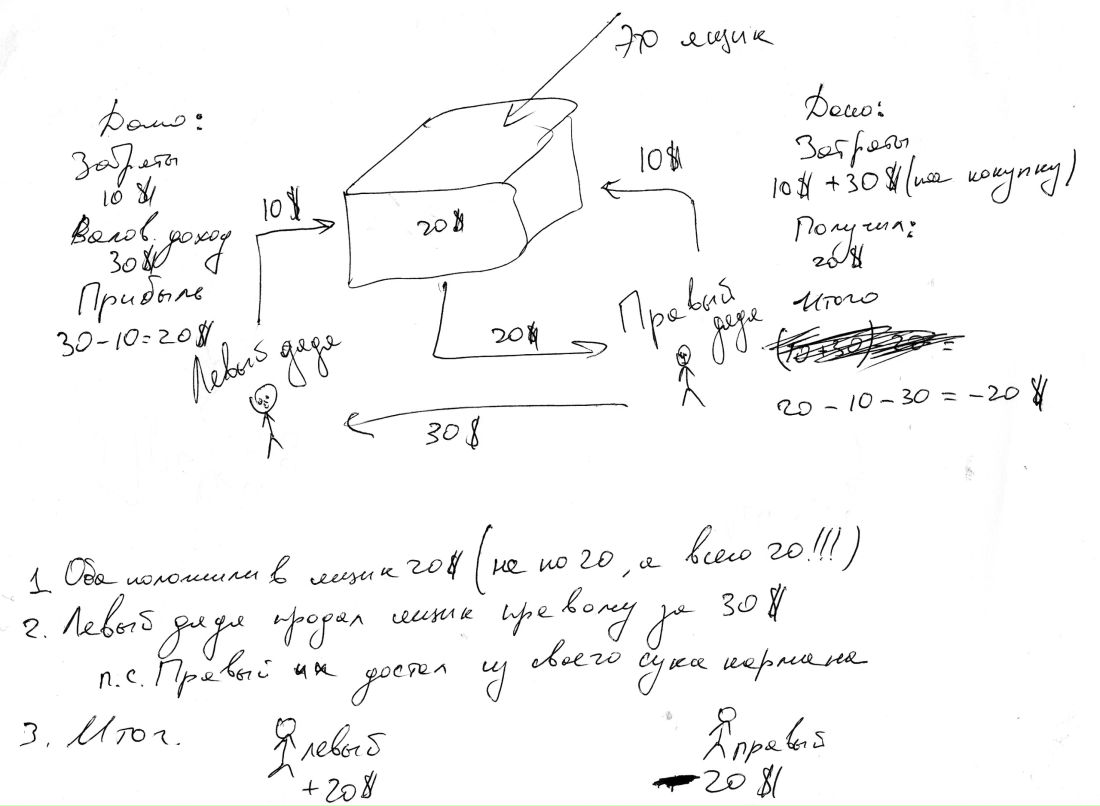 Это ящик
Дано:
Затраты
10$
Валов. доход
30$
Прибыль
30-10=20$
10$
20$
10$
Дано:
Затраты
10$+30$(на покупку)
Получил:
20$
Итого
20-10-30=-20$
Левый дядя
20$
Правый
дядя
30$
1 Оба положили в ящик 20$ (не по 20, а всего 20!!!)
2. Левый дядя продал ящик правому за 30$
п.с. Правый их достал из своего сука кармана
3. Итог.
левый
+20$
правый
-20$